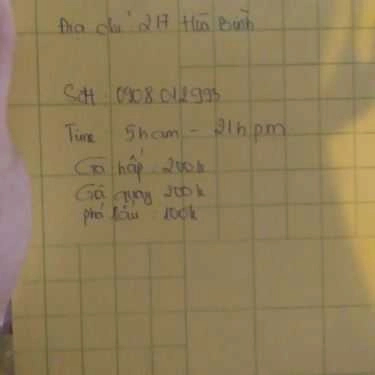 Địa chỉ 217 Hòa Bình
Sđt : 0908 012 993
Time 5h am - 21h pm
Gà hấp : 200k
Gà nướng 200k
phá lấu : 100k